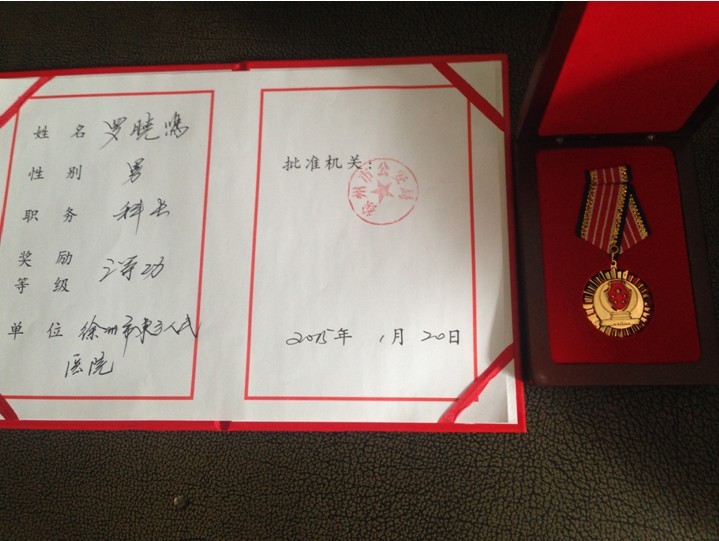 姓名 罗晓鸿
性别 男
职务 科长
奖励等级 三等功
单位 徐州市东方人民
医院
批准机关：
徐州市公安局
2015年 1月 20日